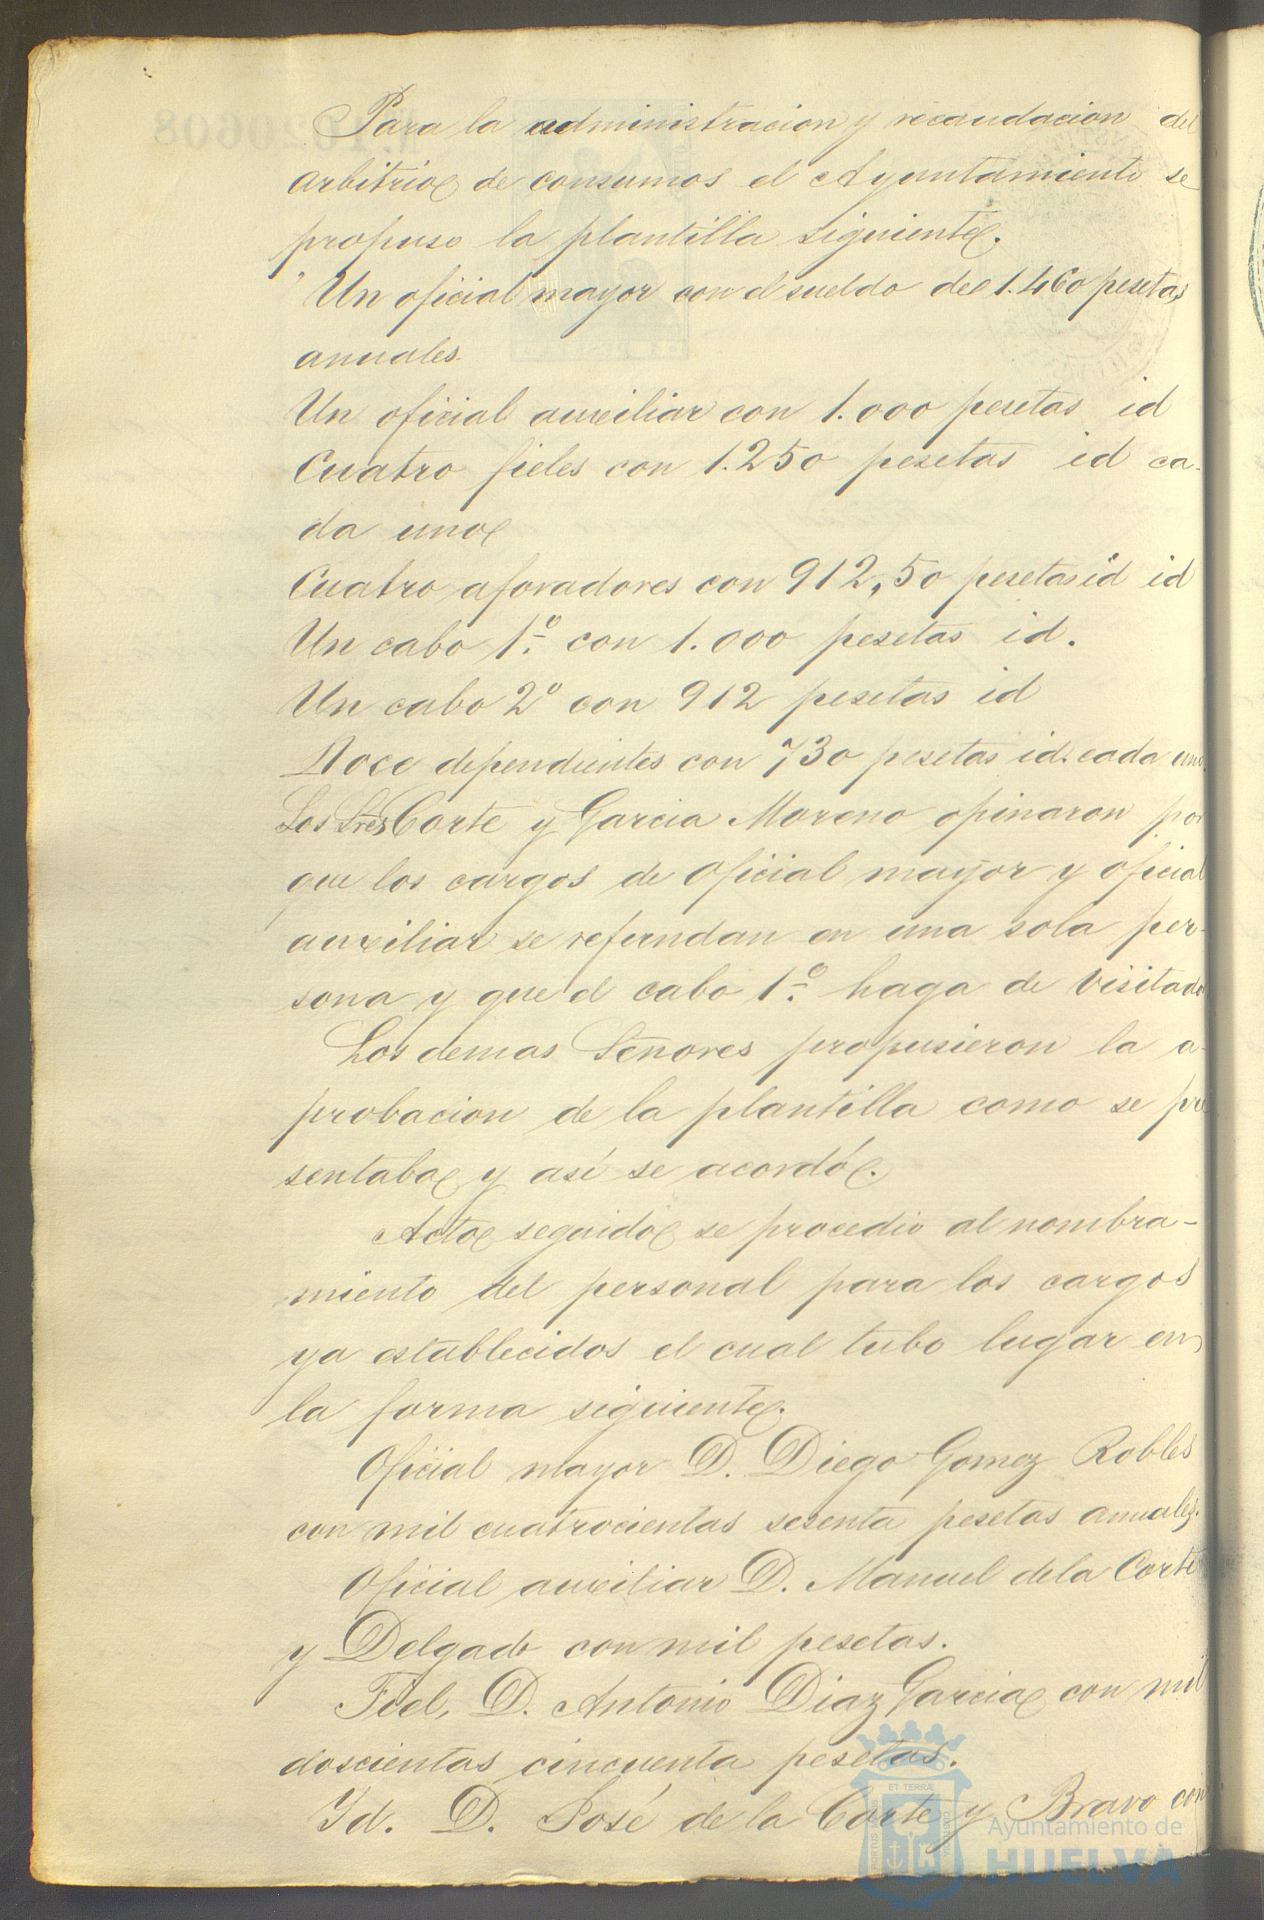 Para la administracion y recaudacion del
arbitrio de consumos el Ayuntamiento se
propuso la plantilla siguiente.
Un oficial mayor con el sueldo de 1.460 pesetas
anuales.
Un oficial auxiliar con 1.000 pesetas id
Cuatro fieles con 1.250 pesetas id ca-
da uno
Cuatro aforadores con 912,50 pesetas id id
Un cabo 1.º con 1.000 pesetas id.
Un cabo 2º con 912 pesetas id
Doce dependientes con 730 pesetas id. cada uno.
Los Sres Corte y Garcia Moreno opinaron por
que los cargos de oficial mayor y oficial
auxiliar se referndan en una sola per-
sona y que el cabo 1.º haga de visitado
Los demas Señores propusieron la a-
probacion de la plantilla como se pre
sentaba y así se acordó.
Acto seguido se procedio al nombra-
miento del personal para los cargos
ya establecidos el cual tubo lugar en
la forma siguiente.
Oficial mayor D. Diego Gomez Robles
con mil cuatrocientas sesenta pesetas anuales.
Oficial auxiliar D. Manuel de la Corte
y Delgado con mil pesetas.
Fiel, D. Antonio Diaz Garcia con mil
doscientas cincuenta pesetas.
Id. D. José de la Corte y Bravo con
Ayuntamiento de
HUELVA